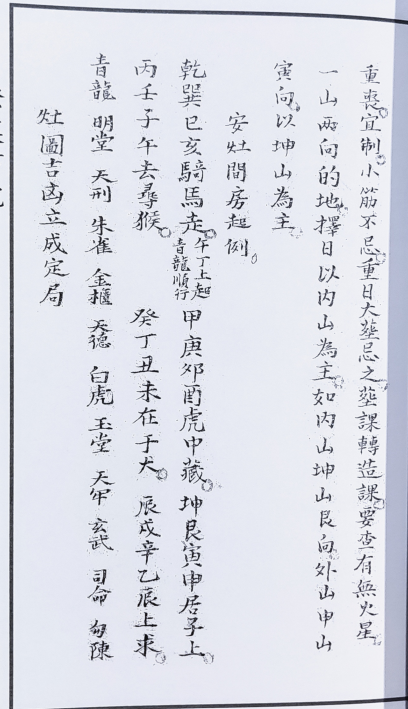 重喪宜制小筋不忌。重日大塟忌之。塟課轉造課。要查有無火星。
一山兩向的地。擇日以內山為主。如內山坤山艮向。外山申山
寅向。以坤山為主。
安灶間房起例。
乾巽巳亥騎馬走。午丁上起青龍順行 甲庚夘酉虎中藏。坤艮寅申居子上。
丙壬子午去尋猴。 癸丁丑未在于犬。 辰戌辛乙辰上求。
青龍 明堂 天刑 朱雀 金櫃 天德 白虎 玉堂 天牢 玄武 司命 勾陳
灶圖吉凶立成定局